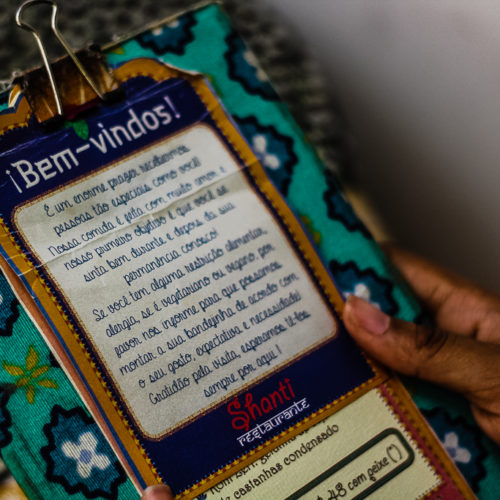 ¡Bem-vindos!
É um enorme prazer recebermos
pessoas tão especiais como você!
Nossa comida é feita com muito amor e
nosso primeiro objetivo é que você se
sinta bem durante e depois da sua
permanência conosco!
Se você tem alguma restrição alimentar,
alergia, se é vegetariano ou vegano, por
favor nos informe para que possamos
montar a sua bandejinha de acordo com
o seu gosto, expectativa e necessidade!
Gratidão pela visita, esperamos tê-los
sempre por aqui!
Shanti
restaurante
castanhas condensado
48 com peixe (*)